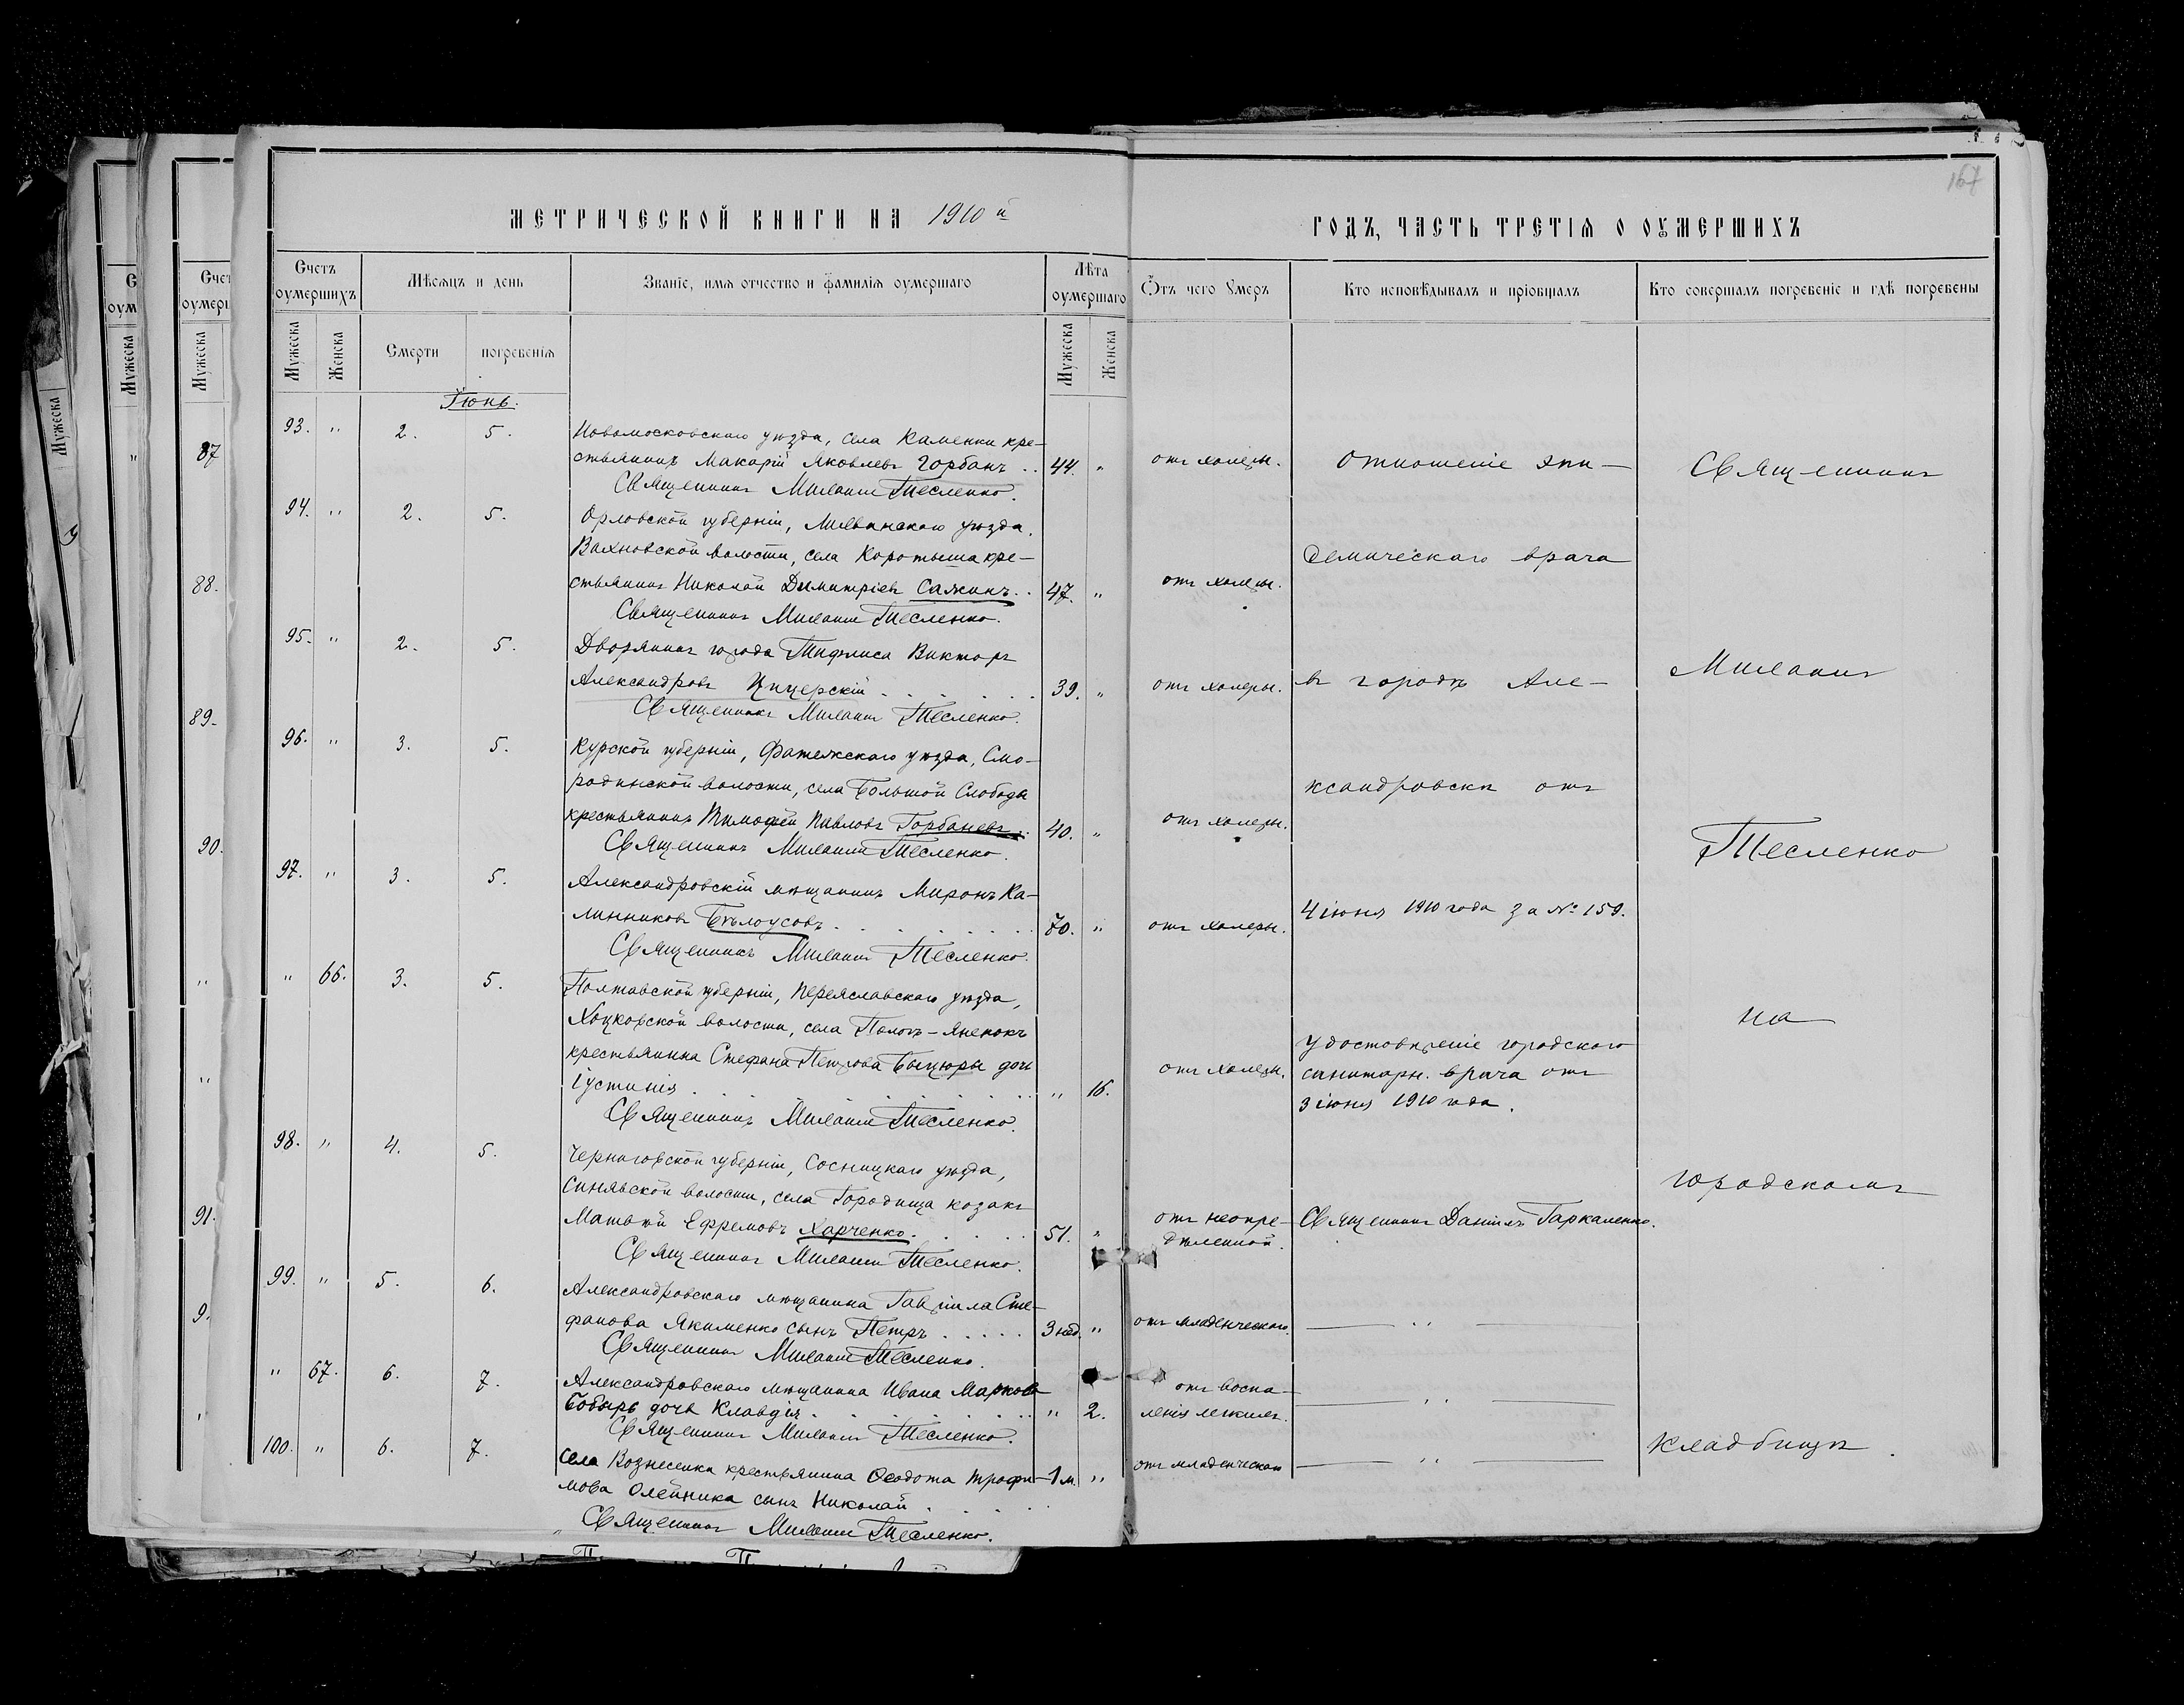 МЕТРИЧЕСКОЙ КНИГИ НА 1910й
ГОДЪ, ЧАСТЬ ТРЕТІЯ О ОУМЕРШИХЪ
167
Счетъ оумершихъ
Мѣсяцъ и день
Званіе, имя отчество и фамилія оумершаго
Лѣта оумершаго
Ѿтъ чего умеръ
Кто исповѣдывалъ и пріобщалъ
Кто совершалъ погребеніе и гдѣ погребены
Мужеска
Женска
Смерти
погребенія
Мужеска
Женска
Іюнь.
93. " 2. 5. Новомосковскаго уѣзда, села Каменки кре-
стьянинъ Макарій Яковлевъ Горбань .. 44. " отъ холеры.
Священникъ Милаш Тесленко.
94. " 2. 5. Орловской губерніи, Ливенскаго уѣзда,
Вахновской волости, села Коротыша кре-
стьянинъ Николай Димитріевъ Сажинъ .. 47. " отъ холеры.
Священникъ Тесленко.
95. " 2. 5. Дворянинъ города Тифлиса Викторъ
Александровъ Цицерскій . . . . . . 39. " отъ холеры.
Священникъ Тесленко.
96. " 3. 5. Курской губерніи, Фатежскаго уѣзда, Смо-
родинской волости, села Большой Слободы
крестьянинъ Тимофей Павловъ Горбаневъ .. 40. " отъ холеры.
Священникъ Тесленко.
97. " 3. 5. Александровскій мѣщанинъ Миронъ Ка-
линниковъ Бѣлоусовъ . . . . . . . 70. " отъ холеры.
Священникъ Тесленко.
" 66. 3. 5. Полтавской губерніи, Переяславскаго уѣзда,
Хоцковской волости, села Пологъ-Яненокъ
крестьянина Стефана Петрова Быцюры дочь
Іустинія . . . . . . . . " 16. отъ холеры.
Священникъ Тесленко.
98. " 4. 5. Черниговской губерніи, Сосницкаго уѣзда,
Синявской волости, села Городища козакъ
Матѳій Ефремовъ Харченко . . . . . 51. " отъ неопре-
дѣленной.
Священникъ Тесленко.
99. " 5. 6. Александровскаго мѣщанина Гавріила Сте-
фанова Якименко сынъ Петръ . . . . . 3 нед. " отъ младенческаго.
Священникъ Тесленко.
" 67. 6. 7. Александровскаго мѣщанина Ивана Маркова
Бобырь дочь Клавдія . . . . . . . " 2. отъ воспа-
ленія легкихъ.
Священникъ Тесленко.
100. " 6. 7. Села Вознесенка крестьянина Ѳеодота Трофи-
мова Олейника сынъ Николай . . . . 1 м. " отъ младенческаго
Священникъ Тесленко.
Отношеніе эпи-
демическаго врача
въ городѣ Але-
ксандровскѣ отъ
4 іюня 1910 года за № 159.
удостовѣреніе городского
санитарн. врача отъ
3 іюня 1910 года.
Священникъ Даніилъ Гаркаленко.
— " —
— " —
— " —
Священникъ
Тесленко
на
городскомъ
кладбищѣ.
Счет
оумерш
Мужеска
87
88.
89.
90.
91.
9.